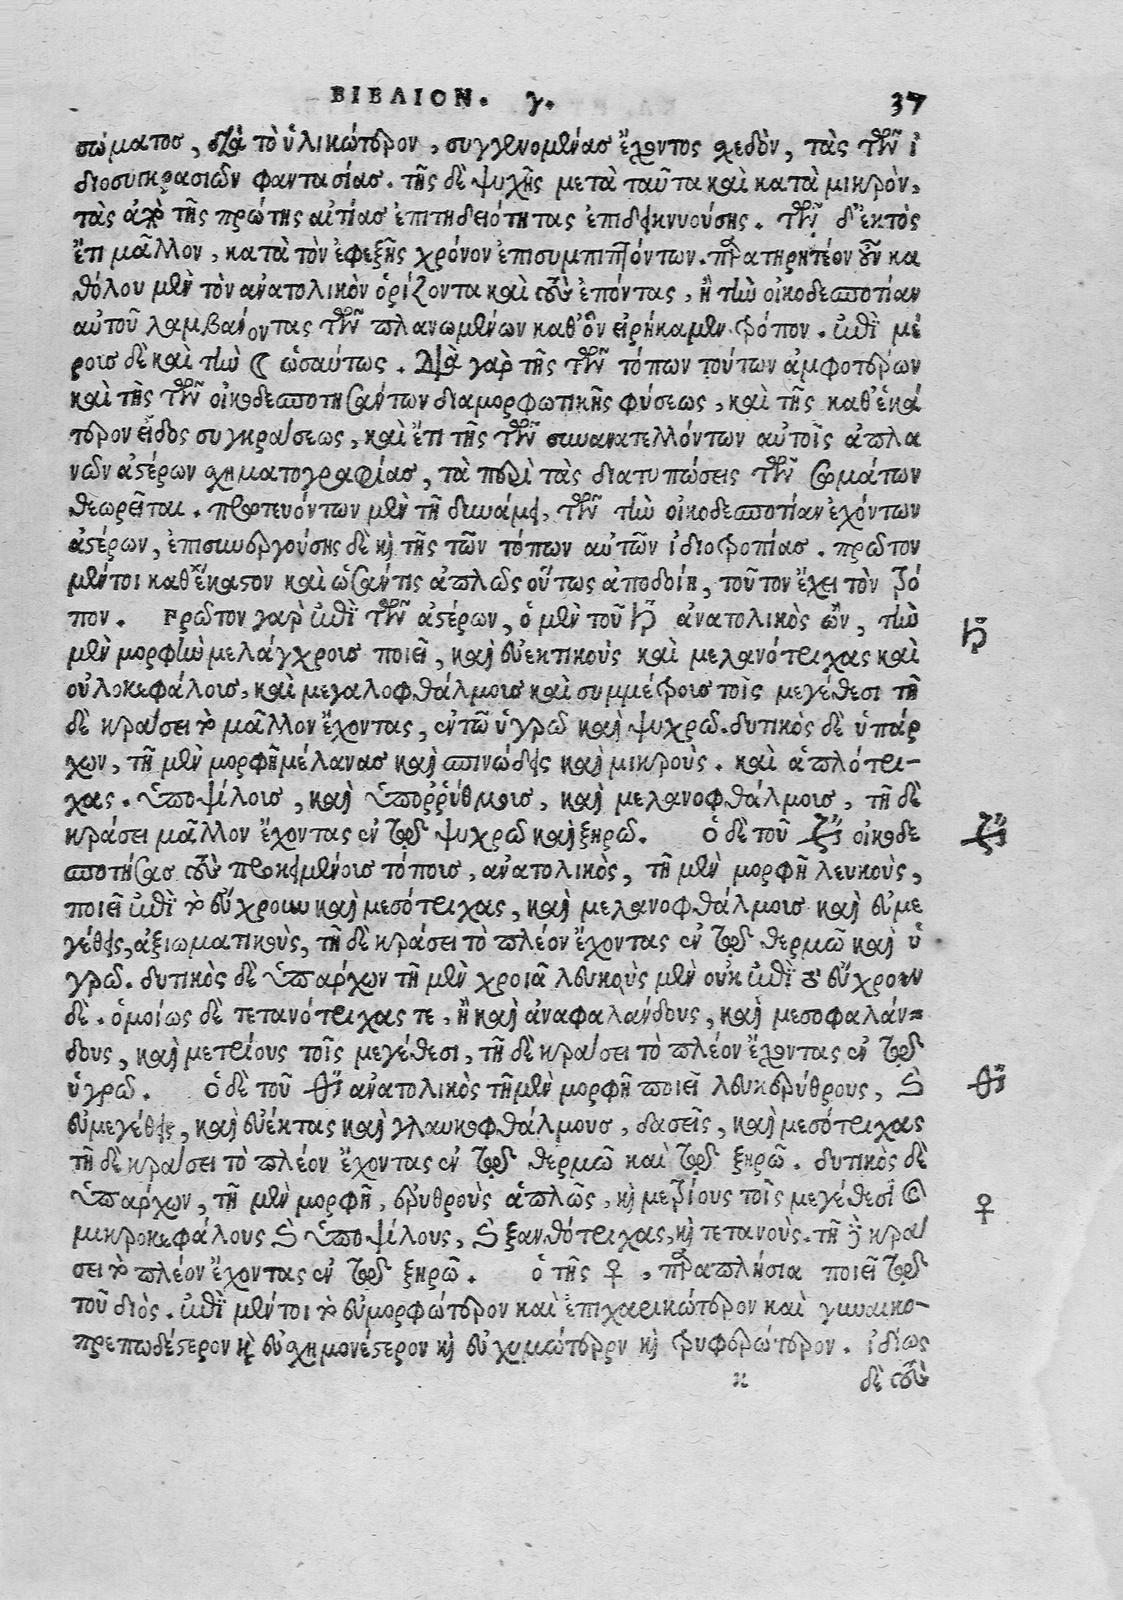 ΒΙΒΛΙΟΝ. γ. 37
σώματοσ, διὰ τὸ ὑλικώτερον, συγγενομένασ ἔχοντος σχεδὸν, τὰς τῶν ἰ
διοσυγκρασιῶν φαντασίασ. τῆς δὲ ψυχῆς μετὰ ταῦτα καὶ κατὰ μικρὸν,
τὰς ἀπὸ τῆς πρώτης αἰτίασ ἐπιτηδειότητας ἐπιδεικνυούσης. τῶν δ' ἐκτὸς
ἔτι μᾶλλον, κατὰ τὸν ἐφεξῆς χρόνον ἐπισυμπιπτόντων. παρατηρητέον οὖν κα
θόλου μὲν τὸν ἀνατολικὸν ὁρίζοντα καὶ τοὺς ἐπόντας, ἢ τὴν οἰκοδεσποτίαν
αὐτοῦ λαμβανοντας τῶν πλανωμένων καθ' ὃν εἰρήκαμεν τρόπον. ἐπὶ μέ
ροισ δὲ καὶ τὴν ☾ ὡσαύτως. διὰ γαρ τῆς τῶν τόπων τούτων ἀμφοτέρων
καὶ τῆς τῶν οἰκοδεσποτησάντων διαμορφωτικῆς φύσεως, καὶ τῆς καθ' ἑκά
τερον εἶδος συγκράσεως, καὶ ἔτι τῆς τῶν συνανατελλόντων αὐτοῖς ἀπλα
νῶν ἀστέρων σχηματογραφίασ, τὰ περὶ τὰς διατυπώσεις τῶν σωμάτων
θεωρεῖται. πρωτευόντων μὲν τῇ δυνάμει, τῶν τὴν οἰκοδεσποτίαν ἐχόντων
ἀστέρων, ἐπισυνεργούσης δὲ κὶ τῆς τῶν τόπων αὐτῶν ἰδιοτροπίασ. πρῶτον
μέντοι καθ' ἕκαστον καὶ ὡσάντις ἁπλῶς οὕτως ἀποδοίη, τοῦτον ἔχει τὸν τρό
πον. πρῶτον γαρ ἐπὶ τῶν ἀστέρων, ὁ μὲν τοῦ ♄ ἀνατολικὸς ὢν, τὴν ♄
μὲν μορφὴν μελάγχροισ ποιεῖ, καὶ εὐεκτικοὺς καὶ μελανότριχας καὶ
οὐλοκεφάλοισ, καὶ μεγαλοφθάλμοισ καὶ συμμέτροισ τοῖς μεγέθεσι τῇ
δὲ κράσει τὸ μᾶλλον ἔχοντας, ἐν τῶ ὑγρῶ καὶ ψυχρῶ. δυτικὸς δὲ ὑπάρ
χων, τῇ μὲν μορφῇ μέλανασ καὶ σπινώδεις καὶ μικροὺς. καὶ ἁπλότρι-
χας. ὑποψίλοισ, καὶ ὑπορρύθμοισ, καὶ μελανοφθάλμοισ, τῇ δὲ
κράσει μᾶλλον ἔχοντας ἐν τῷ ψυχρῶ καὶ ξηρῶ. ὁ δὲ τοῦ ♃ οἰκοδε ♃
σποτήσασ τοὺς προκειμένοισ τόποισ, ἀνατολικὸς, τῇ μὲν μορφῇ λευκοὺς,
ποιεῖ ἐπὶ τὸ εὔχρουν καὶ μεσότριχας, καὶ μελανοφθάλμοισ καὶ εὐμε
γέθεις, ἀξιωματικοὺς, τῇ δὲ κράσει τὸ πλέον ἔχοντας ἐν τῷ θερμῶ καὶ ὑ
γρῶ. δυτικὸς δὲ ὑπαρχων τῇ μὲν χροιᾶ λευκοὺς μὲν οὐκ ἐπὶ τὸ εὔχρουν
δὲ. ὁμοίως δὲ τετανότριχας τε, ἢ καὶ ἀναφαλάνδους, καὶ μεσοφαλάν=
δους, καὶ μετρίους τοῖς μεγέθεσι, τῇ δὲ κράσει τὸ πλέον ἔχοντας ἐν τῷ
ὑγρῶ. ὁ δὲ τοῦ ♂ ἀνατολικὸς τῇ μὲν μορφῇ ποιεῖ λευκερύθρους, καὶ ♂
εὐμεγέθεις, καὶ εὐέκτας καὶ γλαυκοφθάλμουσ, δασεῖς, καὶ μεσότριχας
τῇ δὲ κράσει τὸ πλέον ἔχοντας ἐν τῷ θερμῶ καὶ τῷ ξηρῶ. δυτικὸς δὲ
ὑπαρχων, τῇ μὲν μορφῇ, ἐρυθροὺς ἁπλῶς, κὶ μετρίους τοῖς μεγέθεσι καὶ ♀
μικροκεφάλους καὶ ὑποψίλους, καὶ ξανθότριχας, κὶ τετανοὺς. τῇ δὲ κρά
σει τὸ πλέον ἔχοντας ἐν τῷ ξηρῶ. ὁ τῆς ♀, παραπλήσια ποιεῖ τῷ
τοῦ διός. ἐπὶ μέντοι τὸ εὐμορφώτερον καὶ ἐπιχαρικώτερον καὶ γυναικο-
πρεπωδέστερον κὶ εὐσχημονέστερον κὶ εὐχυμώτερον κὶ τρυφερώτερον. ἰδίως
κ δὲ τοὺς